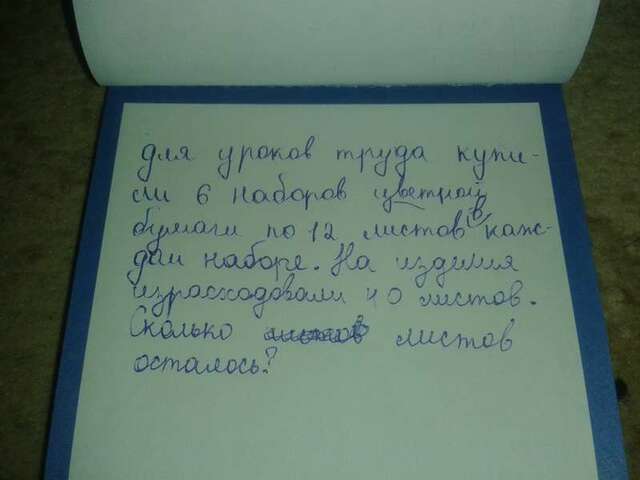 для уроков труда купи-
ли 6 наборов цветной
бумаги по 12 листов в каж-
дом наборе. На изделия
израсходовали 40 листов.
Сколько листов
осталось?